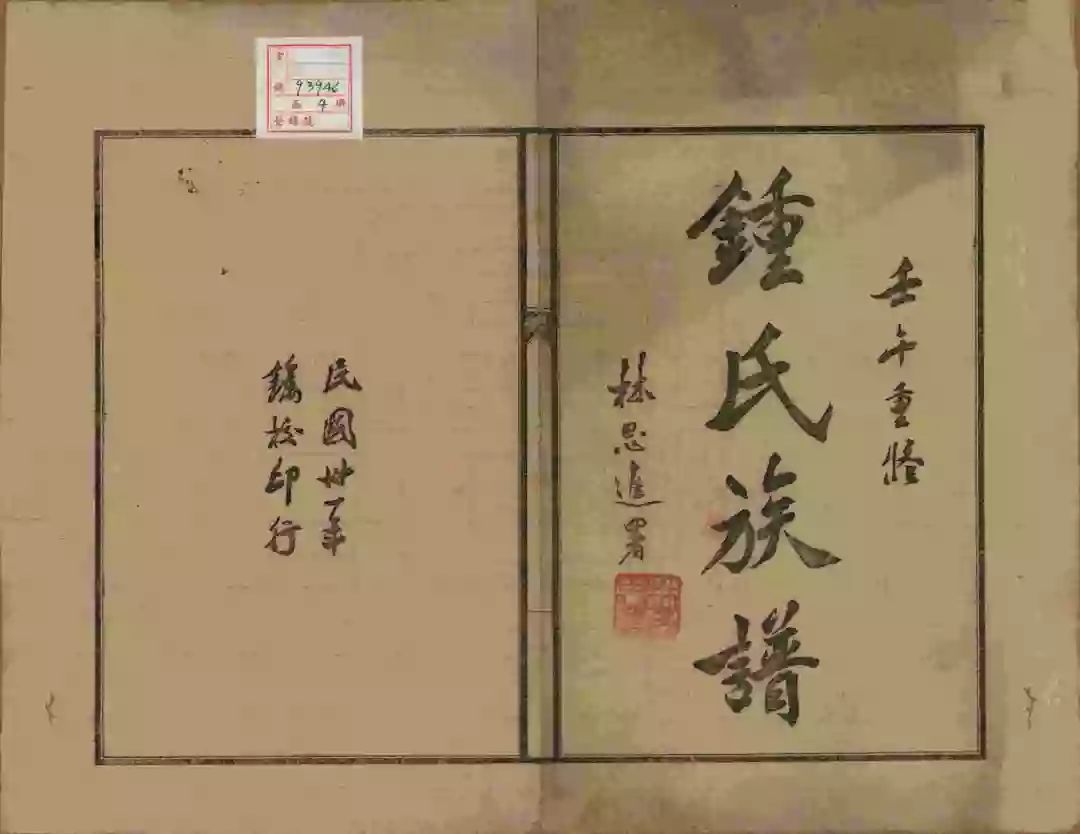 壬午重修
鍾氏族譜
林思進署
民國卅一年
鐫校印行
93946
4